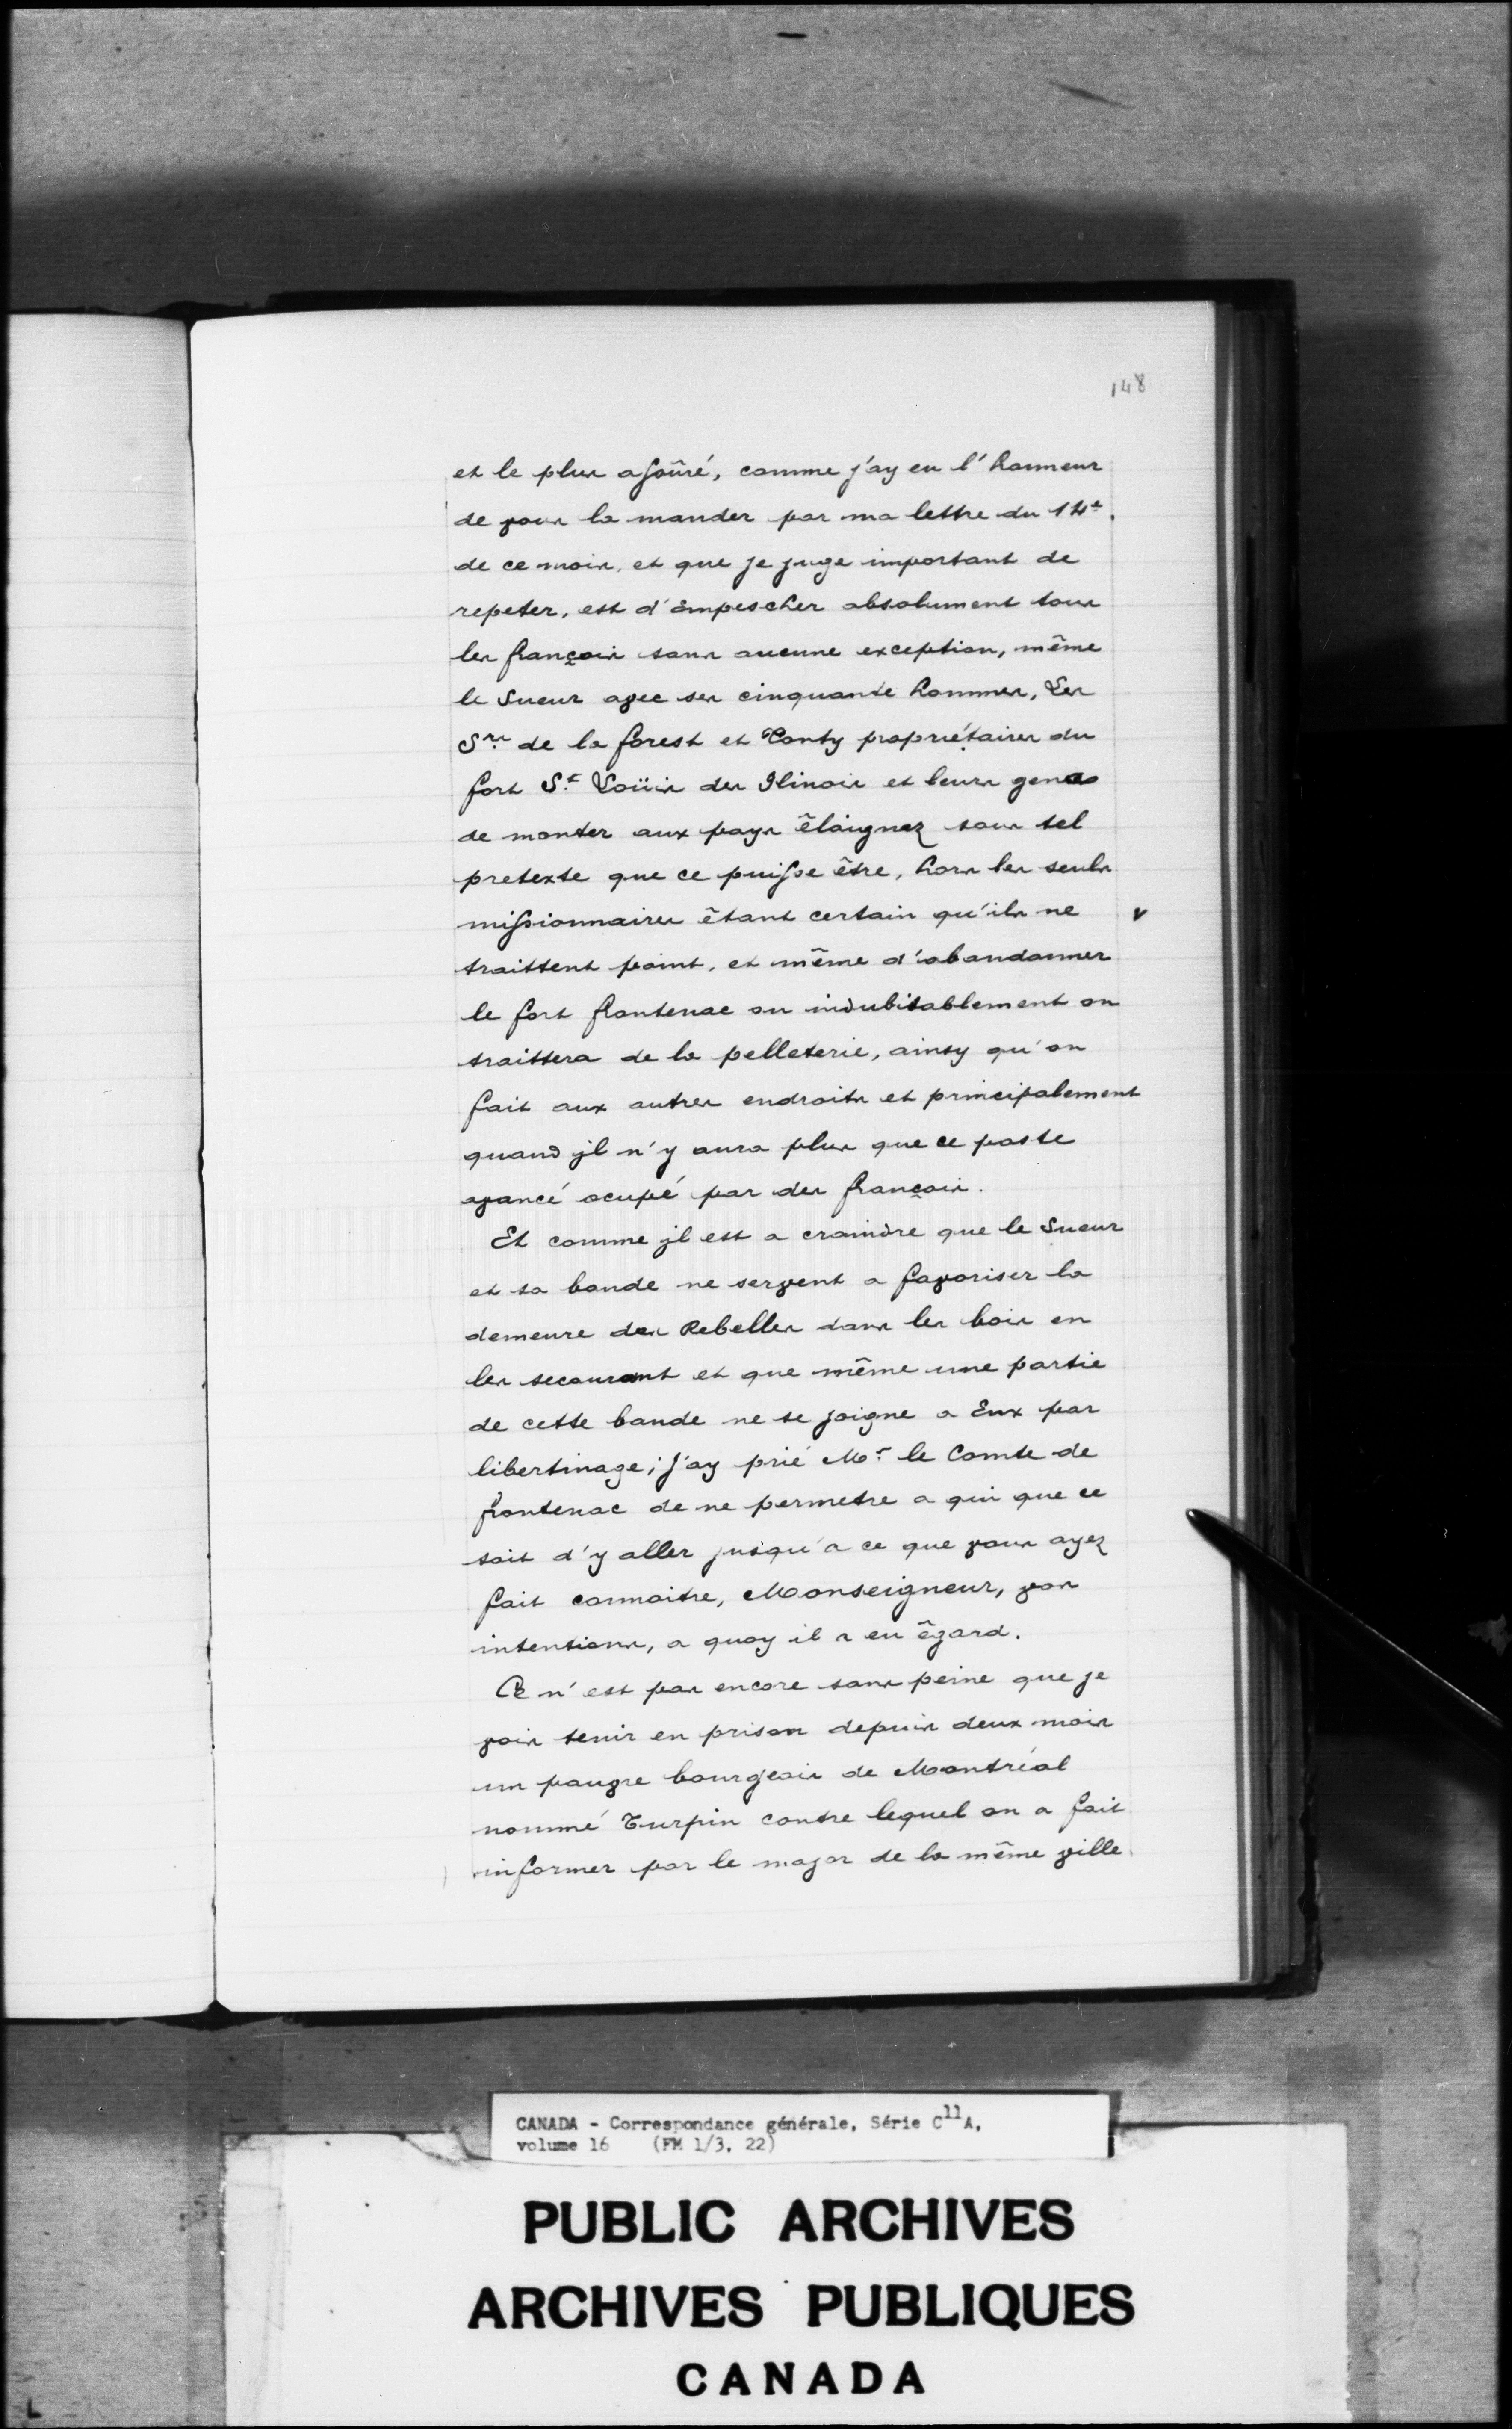 148
et le plus assûré, comme j'ay eu l'honneur
de vous la mander par ma lettre du 14e.
de ce mois, et que je juge important de
repeter, est d'Empescher absolument tous
les françois sans aucune exception, même
le Sueur avec ses cinquante hommes, Les
Srs de la forest et Tonty propriétaires du
fort St Loüis des Ilinois et leurs gens
de monter aux pays êloignez sous tel
pretexte que ce puisse être, hors les seuls
missionnaires êtant certain qu'ils ne v
traittent point, et même d'abandonner
le fort frontenac ou indubitablement on
traittera de la pelleterie, ainsy qu'on
fait aux autres endroits et principalement
quand jl n'y aura plus que ce poste
avancé ocupé par des françois.
Et comme jl est a craindre que le Sueur
et sa bande ne servent a favoriser la
demeure des Rebelles dans les bois en
les secourant et que même une partie
de cette bande ne se joigne a Eux par
libertinage; j'ay prié Mr le Comte de
frontenac de ne permetre a qui que ce
soit d'y aller jusqu'a ce que vous ayez
fait connoitre, Monseigneur, vos
intentions, a quoy il a eu êgard.
Ce n'est pas encore sans peine que je
vois tenir en prison depuis deux mois
un pauvre bourgeois de Montréal
nommé Turpin contre lequel on a fait
informer par le major de la même ville
CANADA - Correspondance générale, Série C11A,
volume 16 (FM 1/3, 22)
PUBLIC ARCHIVES
ARCHIVES PUBLIQUES
CANADA
L